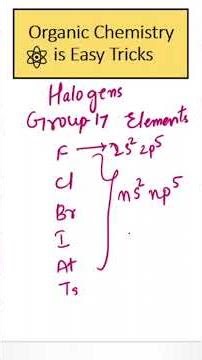 Organic Chemistry
is Easy Tricks
Halogens
Group 17 Elements
F → 2s² 2p⁵
Cl
Br ns² np⁵
I
At
Ts